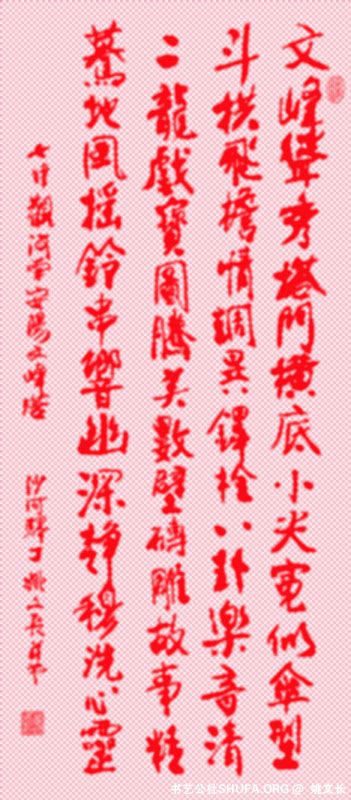 文峰聳秀塔門橫底小尖寬似傘型
斗拱飛檐情調異鐸栓八卦樂音清
二龍戲寶圖騰美數壁磚雕故事精
驀地風搖鈴串響幽深靜穆洗心靈
七律觀河南安陽文峰塔 沙河驛丁姚文長
书艺公社SHUFA.ORG @ 姚文长